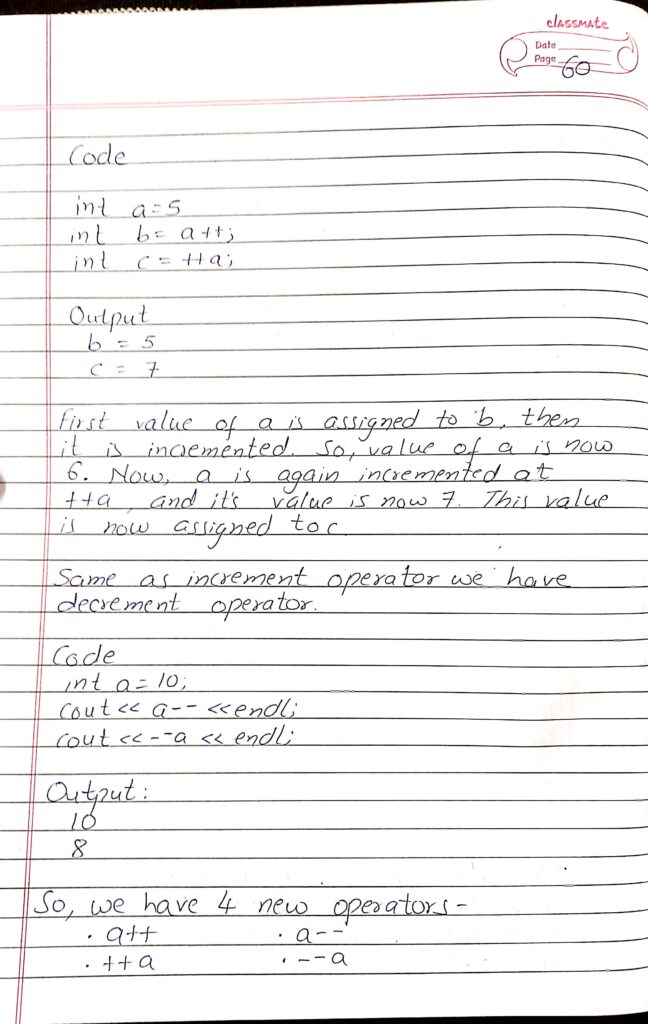 classmate
Date
Page 60
Code
int a=5
int b= a++;
int c = ++a;
Output
b = 5
c = 7
First value of a is assigned to b, then
it is incremented. So, value of a is now
6. Now, a is again incremented at
++a, and it's value is now 7. This value
is now assigned to c
Same as increment operator we have
decrement operator.
Code
int a=10;
cout << a-- <<endl;
cout << --a << endl;
Output:
10
8
So, we have 4 new operators-
• a++ • a--
• ++a • --a